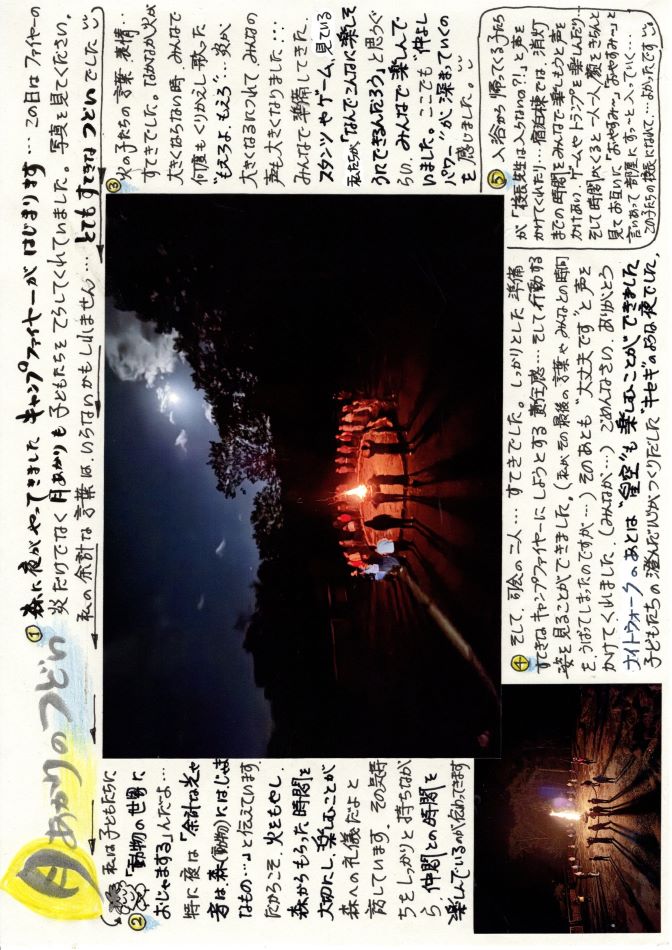 月あかりのつどい
① 森に夜がやってきました キャンプファイヤーが はじまります… この日は ファイヤーの
炎だけでなく 月あかりも 子どもたちを てらしてくれていました。写真を見てください。
私の余計な言葉は いらないかもしれません… とても すてきな つどい でした
② 私は子どもたちに
「動物の世界に
おじゃまする」んだよ…
特に夜は「余計な光や
音は、森(動物)にはじゃま
なもの…」と伝えています。
だからこそ、火をもやし、
森からもらった時間を
大切にし、楽しむことが
森への礼儀だよと
話しています。その気持
ちをしっかりと持ちなが
ら、仲間との時間を
楽しんでいるのが伝わってきます
③ 火の子たちの 言葉、表情…
すてきでした。なかなか火が
大きくならない時、みんなで
何度もくりかえし歌った
“もえろよ もえろ”… 炎が
大きくなるにつれて みんなの
声も大きくなりました…
みんなで 準備してきた
スタンツやゲーム、見ている
私たちが、「なんでこんなに楽しそ
うにできるんだろう」と思うぐ
らい、みんなで楽しんで
いました。ここでも“仲よし
パワー”が深まっていくの
を感じました。
④ そして、司会の二人… すてきでした。しっかりとした準備
すてきなキャンプファイヤーにしようとする責任感… そして行動する
姿を見ることができました。(私が その最後の言葉や みんなとの時間
を、うばってしまったのですが…) そのあとも“大丈夫です”と声を
かけてくれました、(みんなが…) ごめんなさい、ありがとう
ナイトウォークのあとは“星空”も 楽しむことができました
子どもたちの澄んだ心がつくりだした“キセキ”のような夜でした。
⑤ 入浴から帰ってくる子たち
が「校長先生は入らないの?!」と声を
かけてくれたり… 宿泊棟では、消灯
までの時間をみんなで楽しもうと声を
かけあい、ゲームやトランプを楽しんだり…
そして時間がくると一人一人顔をきちんと
見てお互いに「おやすみ〜」「おやすみ〜」と
言いあって部屋にすーっと入っていく…
この子たちの校長になれて…よかったです